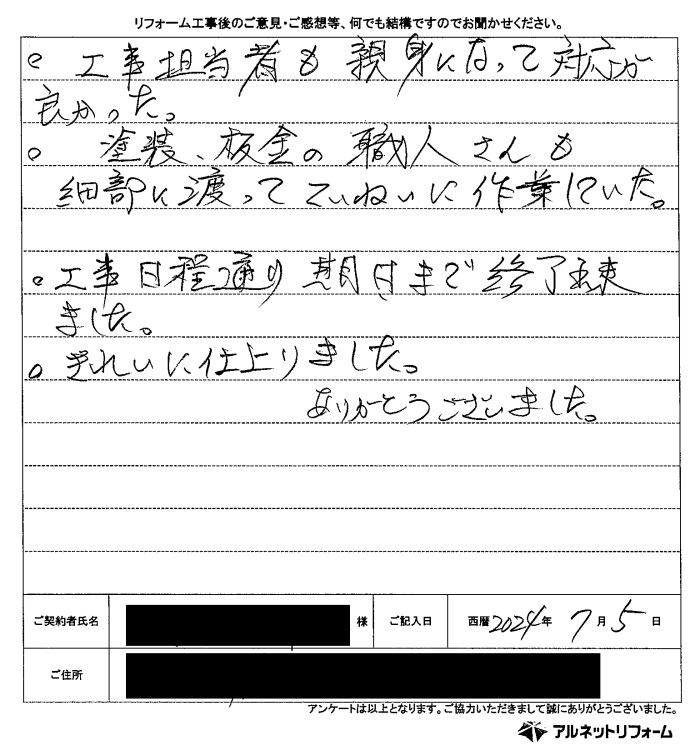 リフォーム工事後のご意見・ご感想等、何でも結構ですのでお聞かせください。
○ 工事担当者も親身になって対応が
良かった。
○ 塗装、板金の職人さんも
細部に渡っていねいに作業していた。
○工事日程通り期日まで終了出来
ました。
○きれいに仕上りました。
ありがとうございました。
ご契約者氏名 様 ご記入日 西暦2024年 7月 5日
ご住所
アンケートは以上となります。ご協力いただきまして誠にありがとうございました。
アルネットリフォーム